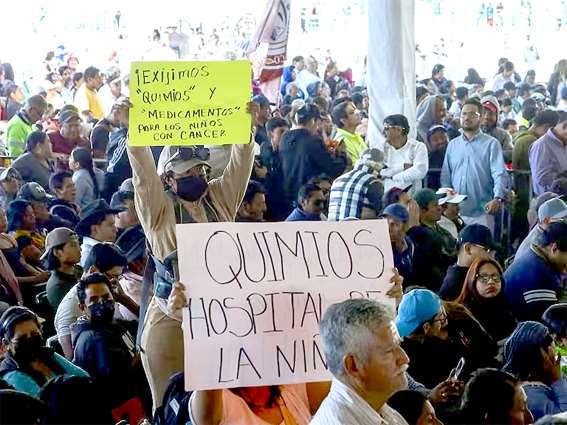 ¡EXÍJIMOS
"QUIMIOS" Y
"MEDICAMENTOS"
PARA LOS NIÑOS
CON CANCER
QUIMIOS
HOSPITAL DE
LA NIÑ